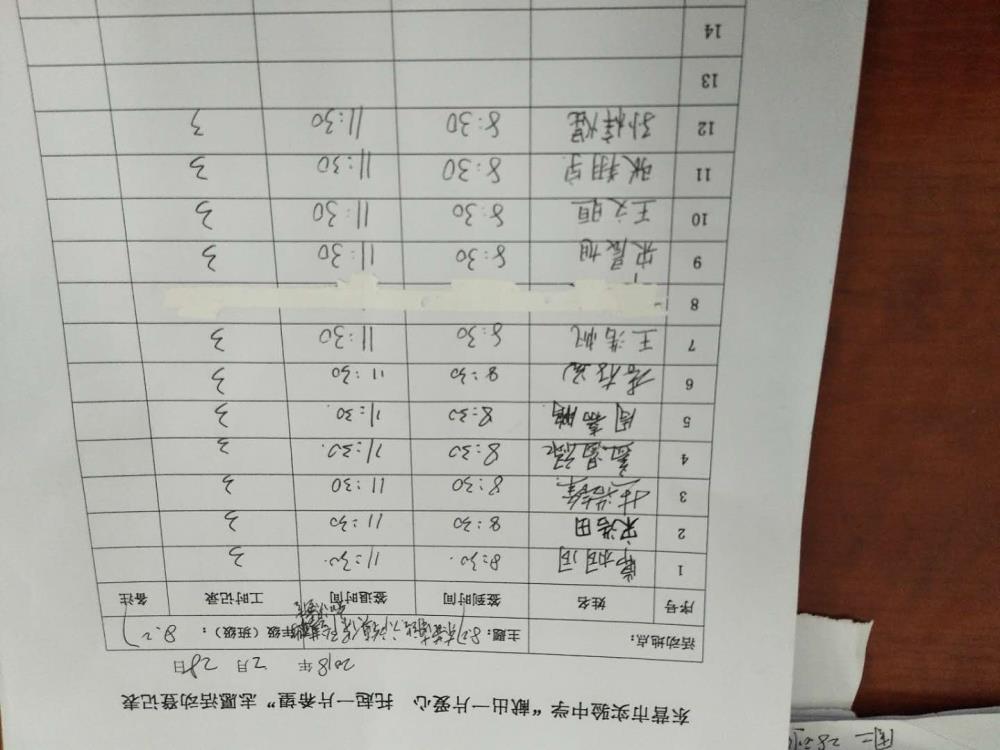 东营市实验中学“献出一片爱心 托起一片希望”志愿活动登记表
2018年 2月 28日
活动地点： 主题： 年级（班级）： 8.2
序号 姓名 签到时间 签退时间 工时记录 备注
1 8:30 11:30 3
2 宋浩田 8:30 11:30 3
3 8:30 11:30 3
4 8:30 11:30 3
5 周嘉鹏 8:30 11:30 3
6 8:30 11:30 3
7 王浩帆 8:30 11:30 3
8
9 宋晨旭 8:30 11:30 3
10 王文暄 8:30 11:30 3
11 张翔宇 8:30 11:30 3
12 8:30 11:30 3
13
14